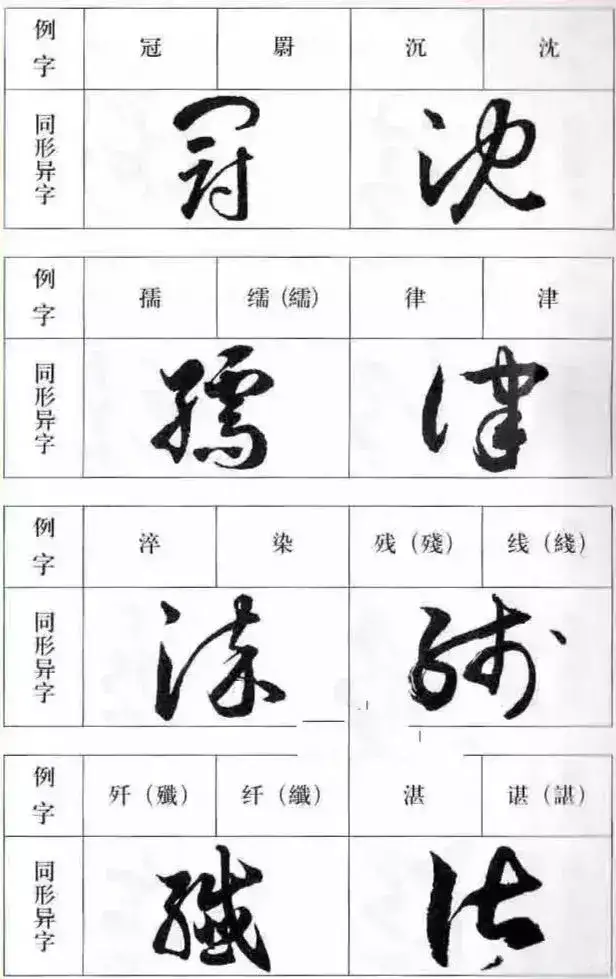 例字 冠 沉 沈
同形异字
例字 孺 缛（繻） 律 津
同形异字
例字 淬 染 残（殘） 线（綫）
同形异字
例字 歼（殲） 纤（纖） 湛 谌（諶）
同形异字